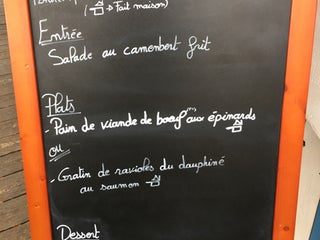 ( → Fait maison)
Entrée
Salade au camembert frit
Plats
- Pain de viande de bœuf aux épinards
ou
- Gratin de ravioles du dauphiné
au saumon
Dessert